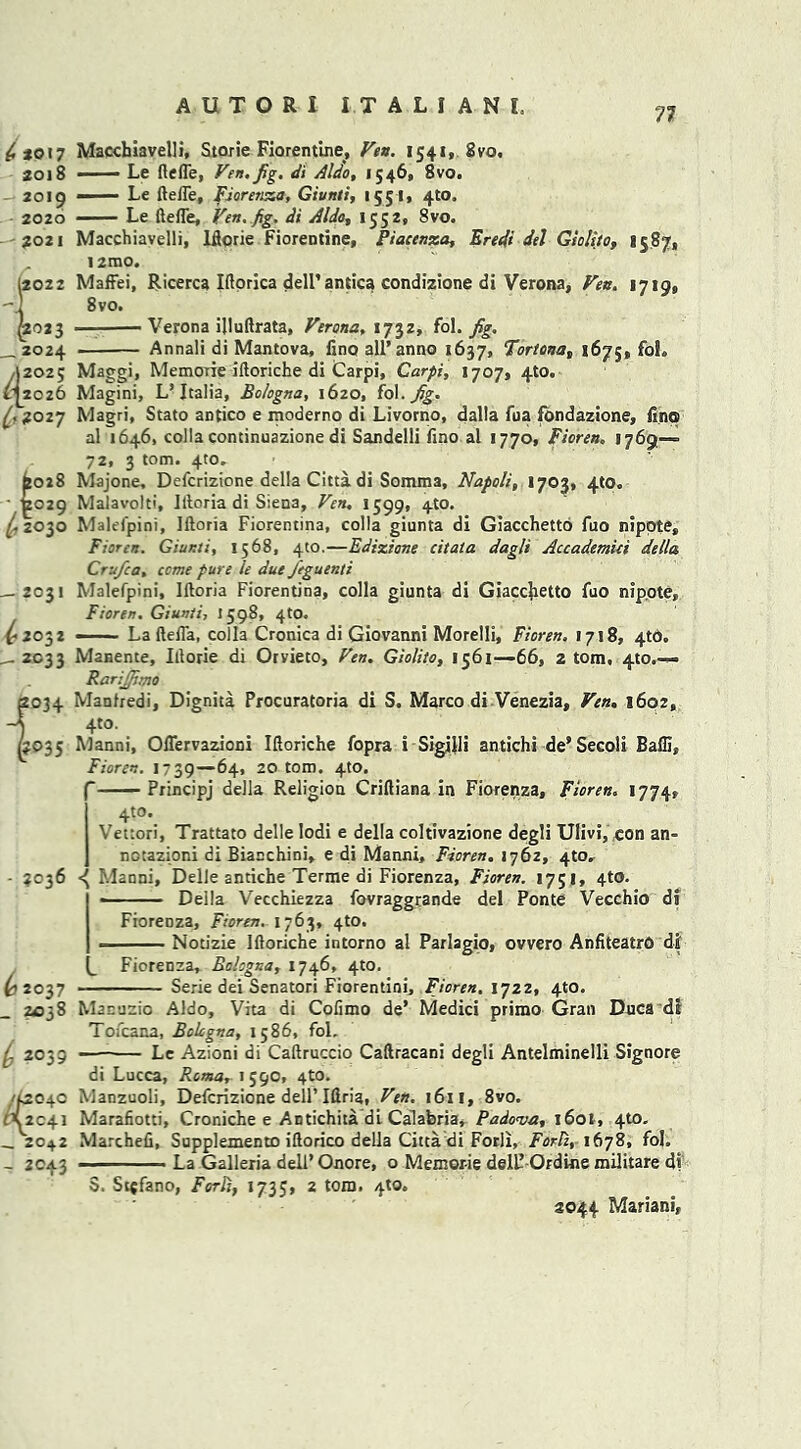 AUTORI ITALIANI. 77
2017 Macchiavelli, Storie Fiorentine, Ven. 1541, 8vo.
2018 —— Le ſteſſe, Ven. fig. di Aldo, 1546, 8vo.
2019 —— Le ſteſſe, Fiorenza, Giunti, 1551, 4to.
2020 —— Le ſteſſe, Ven. fig. di Aldo, 1552, 8vo.
2021 Macchiavelli, Iſtorie Fiorentine, Piacenza, Eredi del Giolito, 1587,
12mo.
2022 Maffei, Ricerca Iſtorica dell' antica condizione di Verona, Ven. 1719,
8vo.
2023 ——— Verona illuſtrata, Verona, 1732, fol. fig.
2024 ——— Annali di Mantova, ſino all' anno 1637, Tortona, 1675, fol.
2025 Maggi, Memorie iſtoriche di Carpi, Carpi, 1707, 4to.
2026 Magini, L' Italia, Bologna, 1620, fol. fig.
2027 Magri, Stato antico e moderno di Livorno, dalla ſua fondazione, ſino
al 1646, colla continuazione di Sandelli ſino al 1770, Fioren. 1769—
72, 3 tom. 4to.
2028 Majone, Deſcrizione della Città di Somma, Napoli, 1703, 4to.
2029 Malavolti, Iſtoria di Siena, Ven. 1599, 4to.
2030 Maleſpini, Iſtoria Fiorentina, colla giunta di Giacchetto ſuo nipote,
Fioren. Giunti, 1568, 4to.—Edizione citata dagli Accademici della
Cruſca, come pure le due ſeguenti
2031 Maleſpini, Iſtoria Fiorentina, colla giunta di Giacchetto ſuo nipote,
Fioren. Giunti, 1598, 4to.
2032 —— La ſteſſa, colla Cronica di Giovanni Morelli, Fioren. 1718, 4to.
2033 Manente, Iſtorie di Orvieto, Ven. Giolito, 1561—66, 2 tom. 4to.—
Rariſſimo
2034 Manfredi, Dignità Procuratoria di S. Marco di Venezia, Ven. 1602,
4to.
2035 Manni, Oſſervazioni Iſtoriche ſopra i Sigilli antichi de' Secoli Baſſi,
Fioren. 1739—64, 20 tom. 4to.
—— Principj della Religion Criſtiana in Fiorenza, Fioren. 1774,
4to.
Vettori, Trattato delle lodi e della coltivazione degli Ulivi, con an-
notazioni di Bianchini, e di Manni, Fioren. 1762, 4to.
2036 Manni, Delle antiche Terme di Fiorenza, Fioren. 1751, 4to.
——— Della Vecchiezza ſovraggrande del Ponte Vecchio di
Fiorenza, Fioren. 1763, 4to.
——— Notizie Iſtoriche intorno al Parlagio, ovvero Anfiteatro di
Fiorenza, Bologna, 1746, 4to.
2037 ——— Serie dei Senatori Fiorentini, Fioren. 1722, 4to.
2038 Manuzio Aldo, Vita di Coſimo de' Medici primo Gran Duca di
Toſcana, Bologna, 1586, fol.
2039 ——— Le Azioni di Caſtruccio Caſtracani degli Antelminelli Signore
di Lucca, Roma, 1590, 4to.
2040 Manzuoli, Deſcrizione dell' Iſtria, Ven. 1611, 8vo.
2041 Marafiotti, Croniche e Antichità di Calabria, Padova, 1601, 4to.
2042 Marcheſi, Supplemento iſtorico della Città di Forlì, Forlì, 1678, fol.
2043 ——— La Galleria dell' Onore, o Memorie dell' Ordine militare di
S. Stefano, Forlì, 1735, 2 tom. 4to.
2044 Mariani,